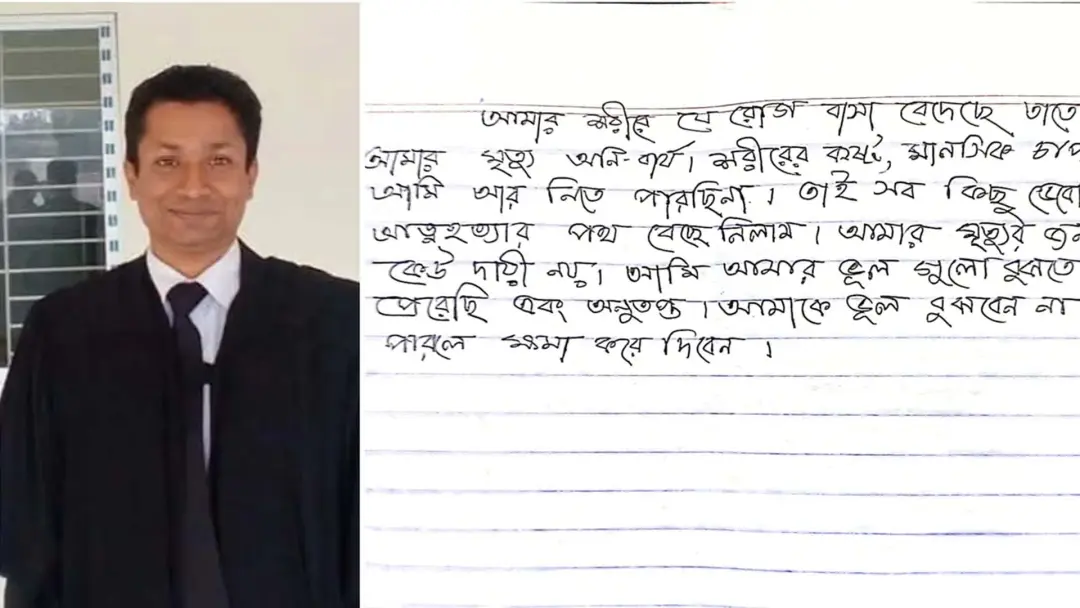 আমার শরীরে যে রোগ বাসা বেদেছে তাতে
আমার মৃত্যু অনিবার্য। শরীরের কষ্ট, মানসিক চাপ
আমি আর নিতে পারছিনা। তাই সব কিছু ভেবে
আত্নহত্যার পথ বেছে নিলাম। আমার মৃত্যুর জন
কেউ দায়ী নয়। আমি আমার ভূল গুলো বুঝতে
পেরেছি এবং অনুতপ্ত। আমাকে ভূল বুঝবেন না
পারলে ক্ষমা করে দিবেন।